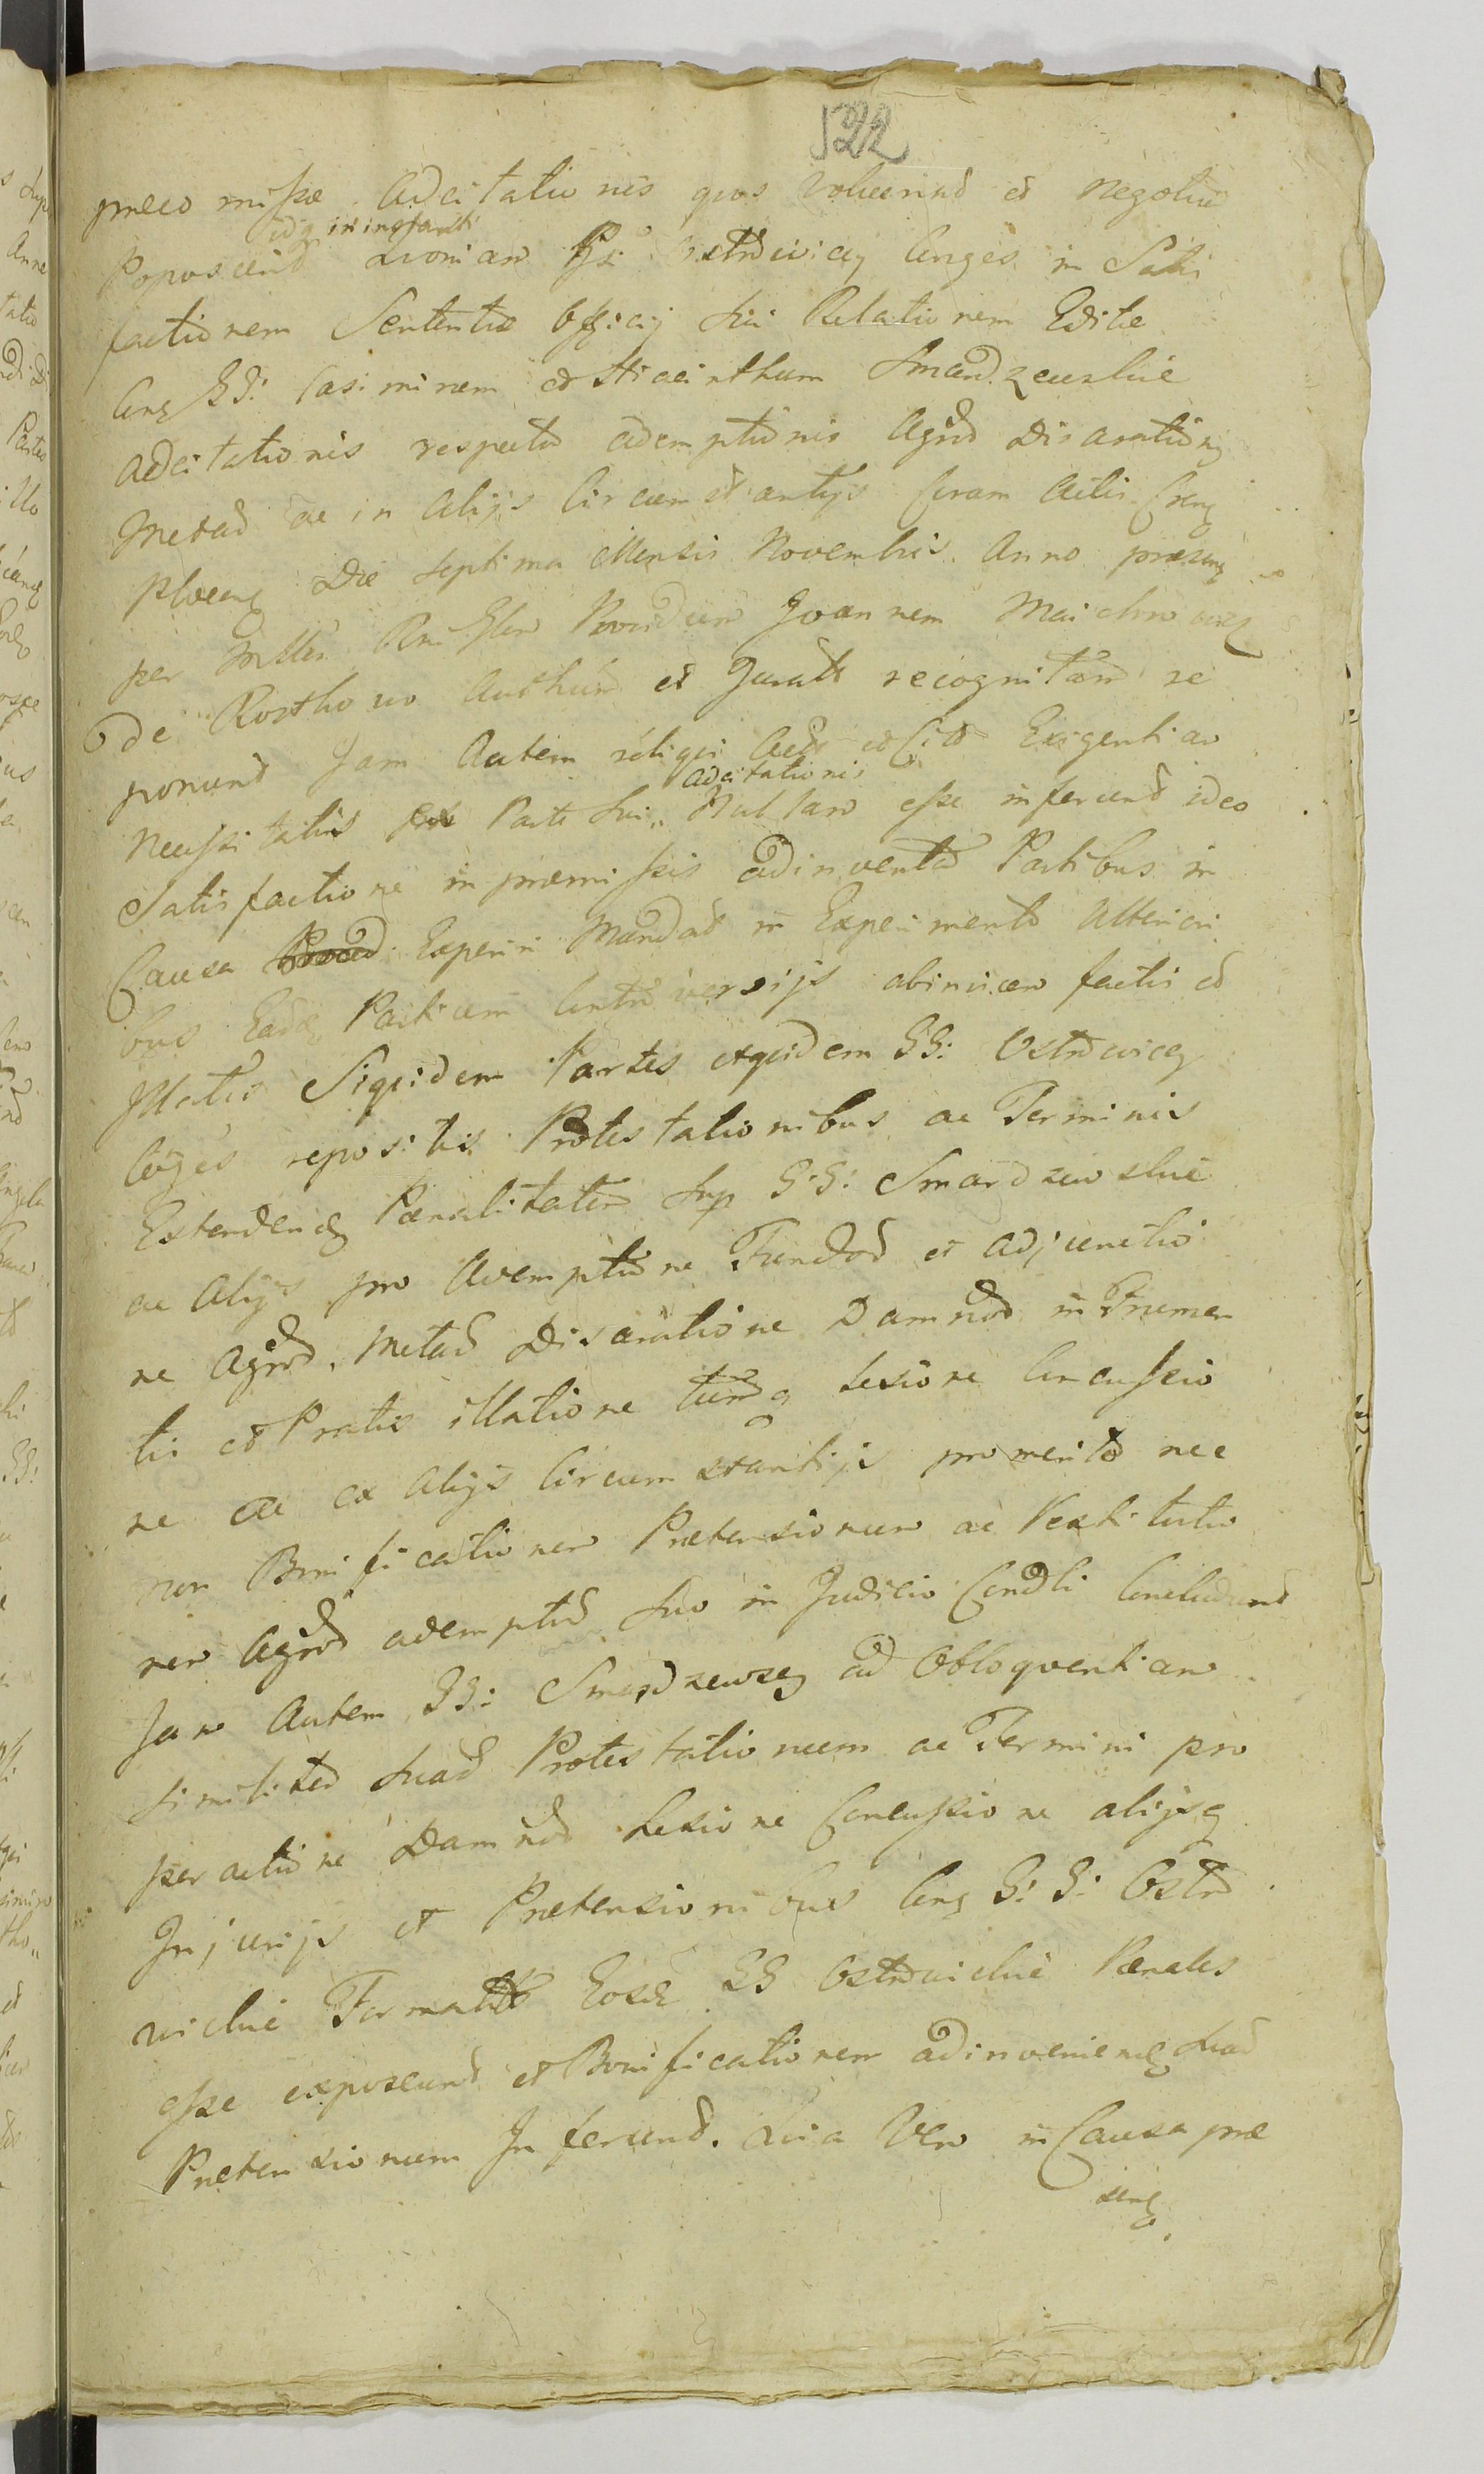 522
præco missæ Adcitationis quos voluerint et negotium
idq in instanti
Poposcerit GG: Ostrowiccy Conges in Satis
factionem Sententiæ Officij sui Relationem Editæ
Cong GG: Casimirum et Hiacinthum Smardzewskie
Adcitationis respectu ademptionis Agrod Disarationg
Metad ac in alijs Circumstantijs Coram Actis Cseng
Plocens Die septima Mensis Novembris Anno præseng
per Joannem
de Rosthowo Authund et Jurat recognitam re
ponund Jam Autem reliqui Exigentiam
adcitationis
Necessitatis ex Parte sui Nullam esse inferund ideo
Satisfactione in præmissis adinventa Partibus in
Causa Experiri Mandat in Experimento Ulteriori
bus Eadg Partium Controversijs abinvicem factis et
Illatis Siquidem Partes et quidem GG: Ostrowiccy
Coges repositis Protestationibus ac Terminis
Extendeng Pænalitatem Sup G:G: Smardzewskie
ac Alijs pro Ademptione Fundod et adjunctio
ne Agrod, Metad Disaratione Damnod in Frumen
tis et Pratis illatione tumq Lesione Concussio
ne ac ex Alijs Circumstantijs promerito nec
non Bonificationem Prætensionum ac Restitutio
nem Agrod ademptod suo in Judicio Condli Concludund
Jam Autem GG: Smardzewscy ad Obloquentiam
similited suad Protestationum ac Termini pro
peractione Damnod Lesione Concussione alijsq
Injurijs et Prætensionibus Cong G: G: Ostro
wickie Format Eosd GG Ostrowickie Pænales
esse exposcund et Bonificationem adinvenieng suad
Prætensionum Inferund. Quia Vero in Causa præ
seng